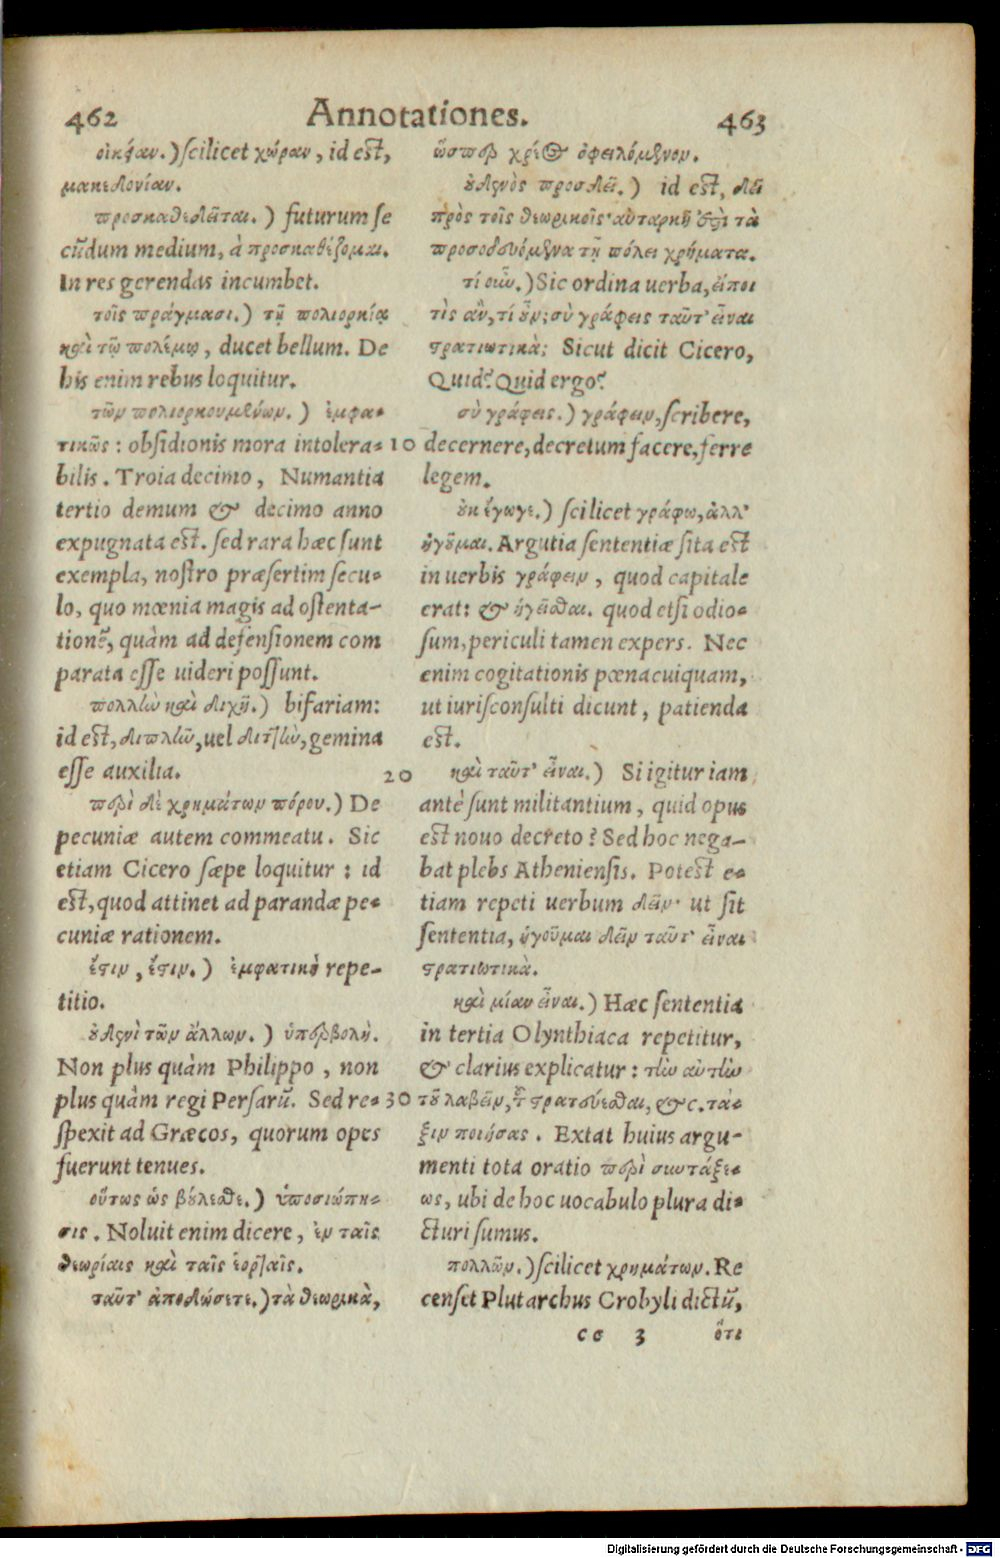 462 Annotationes. 463
οἰκείαν.) scilicet χώραν, id est,
μακεδονίαν.
προσκαθεδεῖται.) futurum se
cũdum medium, à προσκαθέζομαι.
In res gerendas incumbet.
τοῖς πράγμασι.) τῇ πολιορκίᾳ
καὶ τῷ πολέμῳ, ducet bellum. De
his enim rebus loquitur.
τῶν πολιορκουμένων.) ἐμφα-
τικῶς: obsidionis mora intolera-
bilis. Troia decimo, Numantia
tertio demum & decimo anno
expugnata est. sed rara hæc sunt
exempla, nostro præsertim secu-
lo, quo mœnia magis ad ostenta-
tionẽ, quàm ad defensionem com
parata esse uideri possunt.
πολλὼ καὶ διχῆ.) bifariam:
id est, διπλῶ, uel διττὼ, gemina
esse auxilia.
περὶ δὲ χρημάτων πόρου.) De
pecuniæ autem commeatu. Sic
etiam Cicero sæpe loquitur: id
est, quod attinet ad parandæ pe-
cuniæ rationem.
ἔστιν, ἔστιν.) ἐμφατικὴ repe-
titio.
οὐδενὶ τῶν ἄλλων.) ὑπερβολὴ.
Non plus quàm Philippo, non
plus quàm regi Persarũ. Sed re-
spexit ad Græcos, quorum opes
fuerunt tenues.
οὕτως ὡς βούλεσθε.) ὑποσιώπη-
σις. Noluit enim dicere, ἐν ταῖς
θεωρίαις καὶ ταῖς ἑορταῖς.
ταῦτ' ἀποδώσετε.) τὰ θεωρικὰ,
ὥσπερ χρέος ὀφειλόμενον.
οὐδενὸς προσδεῖ.) id est, δεῖ
πρὸς τοῖς θεωρικοῖς· αὐταρκῆ ἐστι τὰ
προσοδευόμενα τῇ πόλει χρήματα.
τί οὖν.) Sic ordina uerba, εἴποι
τὶς ἂν, τί οὖν; σὺ γράφεις ταῦτ' εἶναι
στρατιωτικὰ; Sicut dicit Cicero,
Quid? Quid ergo?
σὺ γράφεις.) γράφειν, scribere,
10 decernere, decretum facere, ferre
legem.
οὐκ ἔγωγε.) scilicet γράφω, ἀλλ'
ἡγοῦμαι. Argutia sententiæ sita est
in uerbis γράφειν, quod capitale
erat: & ἡγεῖσθαι. quod etsi odio-
sum, periculi tamen expers. Nec
enim cogitationis pœna cuiquam,
ut iurisconsulti dicunt, patienda
est.
20 καὶ ταῦτ' εἶναι.) Si igitur iam
antè sunt militantium, quid opus
est nouo decreto? Sed hoc nega-
bat plebs Atheniensis. Potest e-
tiam repeti uerbum δεῖν· ut sit
sententia, ἡγοῦμαι δεῖν ταῦτ' εἶναι
στρατιωτικὰ.
καὶ μίαν εἶναι.) Hæc sententia
in tertia Olynthiaca repetitur,
& clarius explicatur: τὼ αὐτὼ
30 τοῦ λαβεῖν, τοῦ στρατεύεσθαι, &c. τά-
ξιν ποιήσας. Extat huius argu-
menti tota oratio περὶ συντάξε-
ως, ubi de hoc uocabulo plura di-
cturi sumus.
πολλῶν.) scilicet χρημάτων. Re
censet Plutarchus Crobyli dictũ,
cc 3 ὅτι
Digitalisierung gefördert durch die Deutsche Forschungsgemeinschaft - DFG